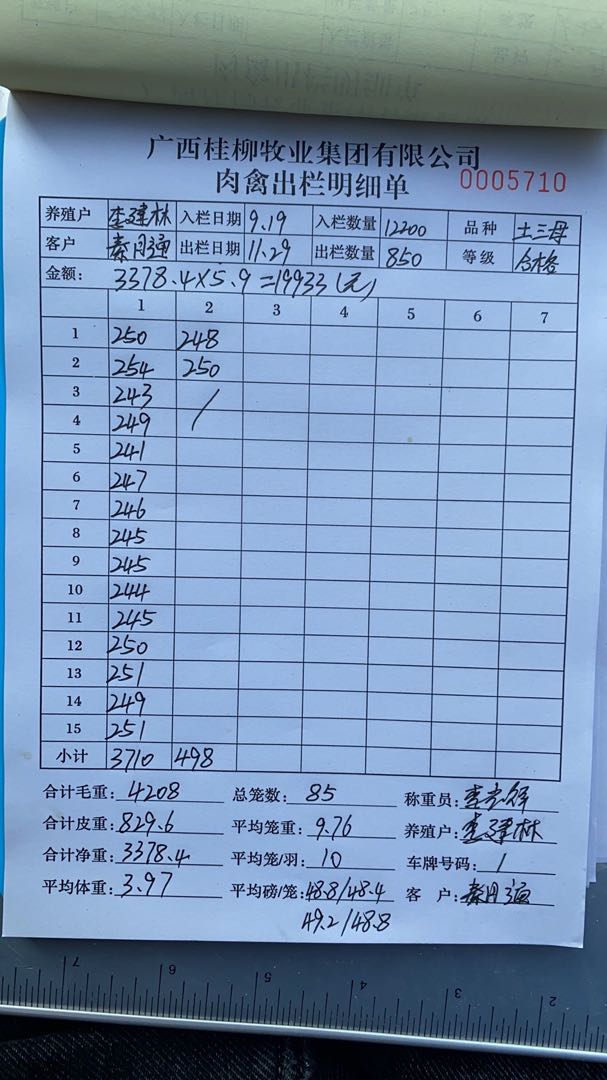 广西桂柳牧业集团有限公司
肉禽出栏明细单 0005710
养殖户 李建林 入栏日期 9.19 入栏数量 12200 品种 土三母
客户 秦用通 出栏日期 11.29 出栏数量 850 等级 合格
金额: 3378.4×5.9=19933(元)
1 2 3 4 5 6 7
1 250 248
2 254 250
3 243 /
4 249
5 241
6 247
7 246
8 245
9 245
10 244
11 245
12 250
13 251
14 249
15 251
小计 3710 498
合计毛重: 4208 总笼数: 85 称重员:
合计皮重: 829.6 平均笼重: 9.76 养殖户: 李建林
合计净重: 3378.4 平均笼/羽: 10 车牌号码: /
平均体重: 3.97 平均磅/笼: 48.8/48.4 客 户: 秦用通
49.2/48.8
7 6 5 4 3 2